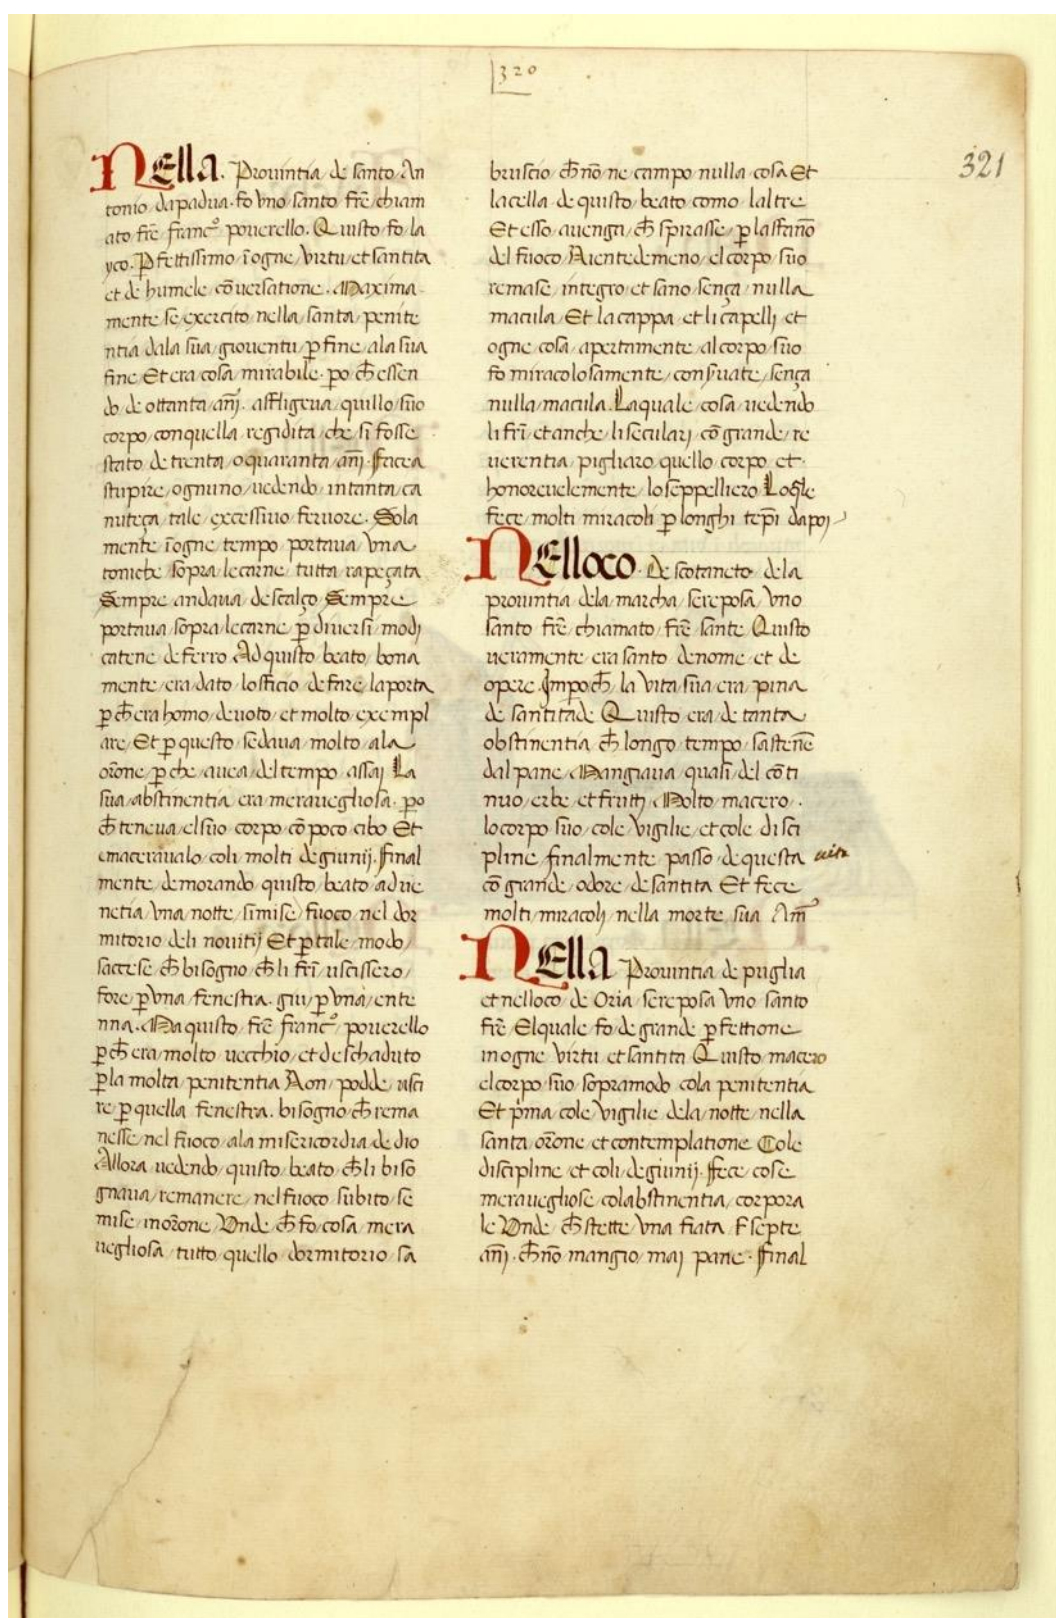 320
321
NElla. Prouintia de santo An
tonio dapadua. fo vno santo frē chiam
ato frē franc̄ pouerello. Quisto fo la
yco. P̄fettissimo īogne virtu et santita
et de humele cōuersatione. Maxima
mente se exercito nella santa penite
ntia dala sua giouentu p̄fine ala sua
fine Et era cosa mirabile. po ch̄ essen
do de ottanta ān̄j. affligeua quillo suo
corpo con quella regidita che si fosse
stato de trenta o quaranta ān̄j. facea
stupire ognuno uedendo in tanta ca
nuteça tale excessiuo feruore. Sola
mente īogne tempo portaua vna
toniche sopra le carne tutta rapeçata
Sempre andaua descalço Sempre
portaua sopra le carne p̄ diuersi modj
catene de ferro Ad quisto beato bona
mente era dato lofficio de fare la porta
p̄ch̄ era homo deuoto et molto exempl
are, Et p̄ questo se daua molto ala
orōne p̄che auea del tempo assaj La
sua abstinentia era meraueghiosa. po
ch̄ teneua el suo corpo cō poco cibo Et
emaceraualo coli molti degiunij. final
mente demorando quisto beato ad ue
netia vna notte si mise fuoco nel dor
mitorio deli nouitij Et p̄ tale modo
saccese ch̄ bisogno ch̄ li frī uscissero
fore p̄ vna fenestra. giu p̄ vna ente
nna. Ma quisto frē franc̄ pouerello
p̄ch̄ era molto uecchio et deschaduto
p̄ la molta penitentia Non podde usci
re p̄ quella fenestra. bisogno ch̄ rema
nesse nel fuoco ala misericordia de dio
Allora uedendo quisto beato ch̄ li biso
gnaua remanere nel fuoco subito se
mise in orōne Vnde ch̄ fo cosa mera
ueghiosa tutto quello dormitorio sa
bruscio ch̄ nō ne campo nulla cosa Et
la cella de quisto beato como laltre
Et esso auenga ch̄ spirasse p̄ laffanō
del fuoco Nientedemeno el corpo suo
remase integro et sano sença nulla
macula Et la cappa et li capelli et
ogne cosa apertamente al corpo suo
fo miracolosamente conſuate sença
nulla macula. La quale cosa uedendo
li frī et anche li secularj cō grande re
uerentia pigliaro quello corpo et
honoreuelemente lo seppelliero Loq̄le
fece molti miracoli p̄ longhi tēpi dapoj
NElloco. De scotaneto dela
prouintia dela marcha se reposa vno
santo frē chiamato frē sante Quisto
ueramente era santo de nome et de
opere. Impoch̄ la vita sua era pina
de santitade Quisto era de tanta
obstinentia ch̄ longo tempo sastenē
dal pane Mangiaua quasi del cōti
nuo erbe et fruttj Molto macero
lo corpo suo cole vigilie et cole disci
pline finalmente passo de questa uita
cō grande odore de santita Et fece
molti miracolj nella morte sua Am̄
NElla Prouintia de puglia
et nelloco de Oria se reposa vno santo
frē El quale fo de grande p̄fettione
in ogne virtu et santita Quisto macero
el corpo suo sopramodo cola penitentia
Et p̄ma cole vigilie dela notte nella
santa orōne et contemplatione Cole
discipline et coli degiunij. fece cose
meraueghiose colabstinentia corpora
le Vnde ch̄ stette vna fiata septe
ān̄j. ch̄ nō mangio maj pane. final